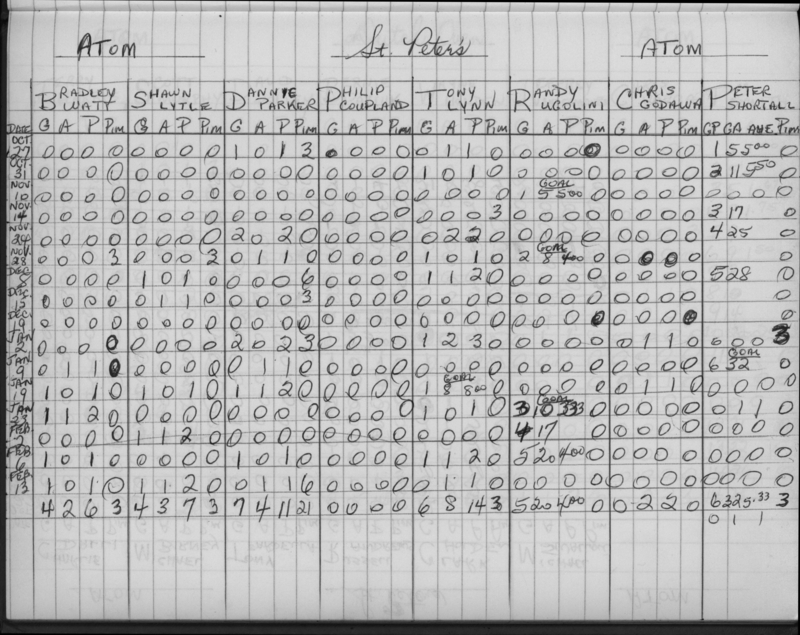 ATOM St. Peter's ATOM
BRADLEY WATT SHAWN LYTLE DANNYE PARKER PHILIP COUPLAND TONY LYNN RANDY UGOLINI CHRIS GODAWA PETER SHORTALL
DATE G A P Pim G A P Pim G A P Pim G A P Pim G A P Pim G A P Pim G A P Pim GP GA AVE Pim
OCT 27 0 0 0 0 0 0 0 0 1 0 1 3 0 0 0 0 0 1 1 0 0 0 0 0 0 0 0 0 1 5 500
OCT. 31 0 0 0 0 0 0 0 0 0 0 0 0 0 0 0 0 1 0 1 0 0 0 0 0 0 0 0 0 2 11 550
GOAL
NOV 10 0 0 0 0 0 0 0 0 0 0 0 0 0 0 0 0 0 0 0 0 1 5 500 0 0 0 0 0 0 0 0 0
NOV. 14 0 0 0 0 0 0 0 0 0 0 0 0 0 0 0 0 0 0 0 3 0 0 0 0 0 0 0 0 3 17 0
NOV. 24 0 0 0 0 0 0 0 0 2 0 2 0 0 0 0 0 0 2 2 0 0 0 0 0 0 0 0 0 4 25 0
GOAL
NOV 28 0 0 0 3 0 0 0 3 0 1 1 0 0 0 0 0 1 0 1 0 2 8 400 0 0 0 0 0 0
DEC 8 0 0 0 0 1 0 1 0 0 0 0 6 0 0 0 0 1 1 2 0 0 0 0 0 0 0 0 0 5 28 0
DEC. 15 0 0 0 0 0 1 1 0 0 0 0 3 0 0 0 0 0 0 0 0 0 0 0 0 0 0 0 0 0
DEC. 19 0 0 0 0 0 0 0 0 0 0 0 0 0 0 0 0 0 0 0 0 0 0 0 0 0 0 0 0 0
JAN 2 0 0 0 0 0 0 0 0 2 0 2 3 0 0 0 0 1 2 3 0 0 0 0 0 0 1 1 0 0 0 0 3
GOAL
JAN 9 0 1 1 0 0 0 0 0 0 1 1 0 0 0 0 0 0 0 0 0 0 0 0 0 0 0 0 0 6 32 0
GOAL
JAN 19 1 0 1 0 1 0 1 0 1 1 2 0 0 0 0 0 1 8 800 0 0 0 0 0 1 1 0 0 0 0 0
GOAL
JAN 1 1 2 0 0 0 0 0 0 0 0 0 0 0 0 0 1 0 1 0 3 10 333 0 0 0 0 0 0 1 1 0
FEB. 2 0 0 0 0 1 1 2 0 0 0 0 0 0 0 0 0 0 0 0 0 4 17 0 0 0 0 0 0 0 0 0
FEB 6 1 0 1 0 0 0 0 0 1 0 1 0 0 0 0 0 1 1 2 0 5 20 400 0 0 0 0 0 0 0 0 0
FEB. 13 1 0 1 0 1 1 2 0 0 1 1 6 0 0 0 0 0 1 1 0 0 0 0 0 0 0 0 0 0 0 0 0
4 2 6 3 4 3 7 3 7 4 11 21 0 0 0 0 6 8 14 3 5 20 400 0 0 2 2 0 6 32 5.33 3
0 1 1